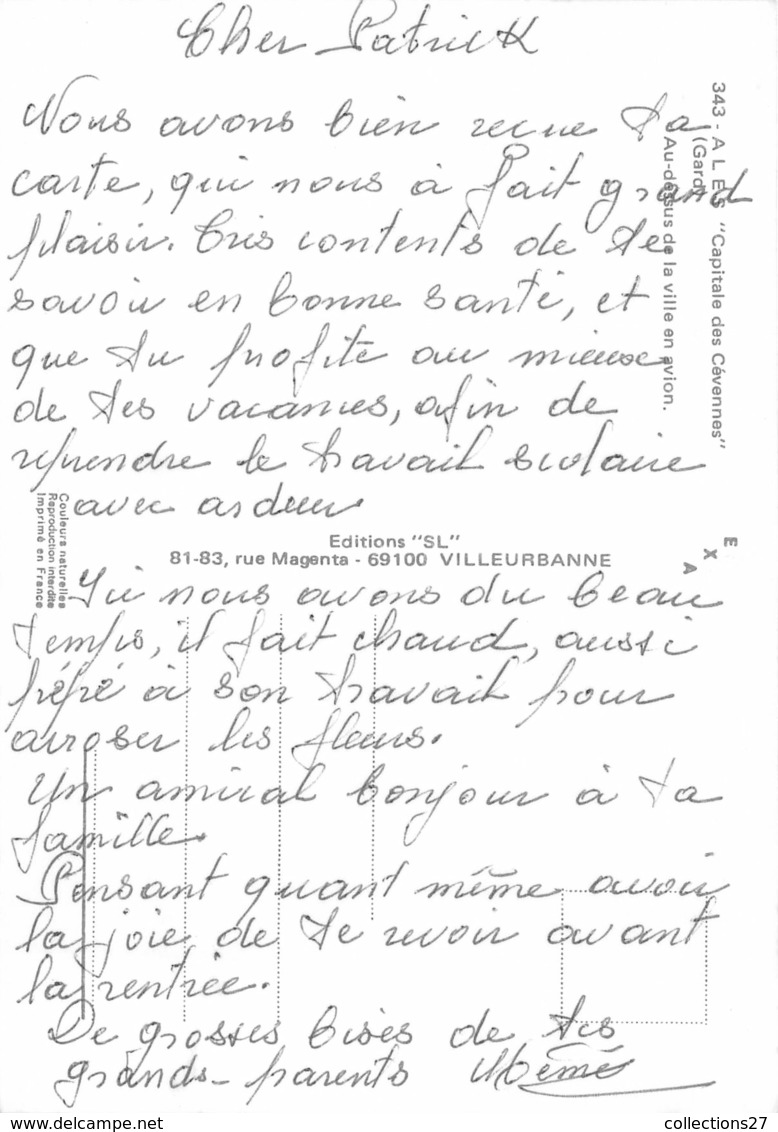 Cher Patrick
Nous avons bien recue ta
carte, qui nous à fait grand
plaisir. Très contents de te
savoir en bonne santé, et
que tu profite au mieuse
de tes vacances, afin de
reprendre le travail scolaire
avec ardeur.
Ici nous avons du beau
temps, il fait chaud, aussi
pépé à son travail pour
arroser les fleurs.
Un amical bonjour à ta
famille.
Pensant quant même avoir
la joie de te revoir avant
la rentrée.
De grosses bises de tes
grands-parents Mémé
343 - ALES "Capitale des Cévennes"
(Gard)
Au-dessus de la ville en avion.
Couleurs naturelles
Reproduction interdite
Imprimé en France
Editions "SL"
81-83, rue Magenta - 69100 VILLEURBANNE
EXA
collections27